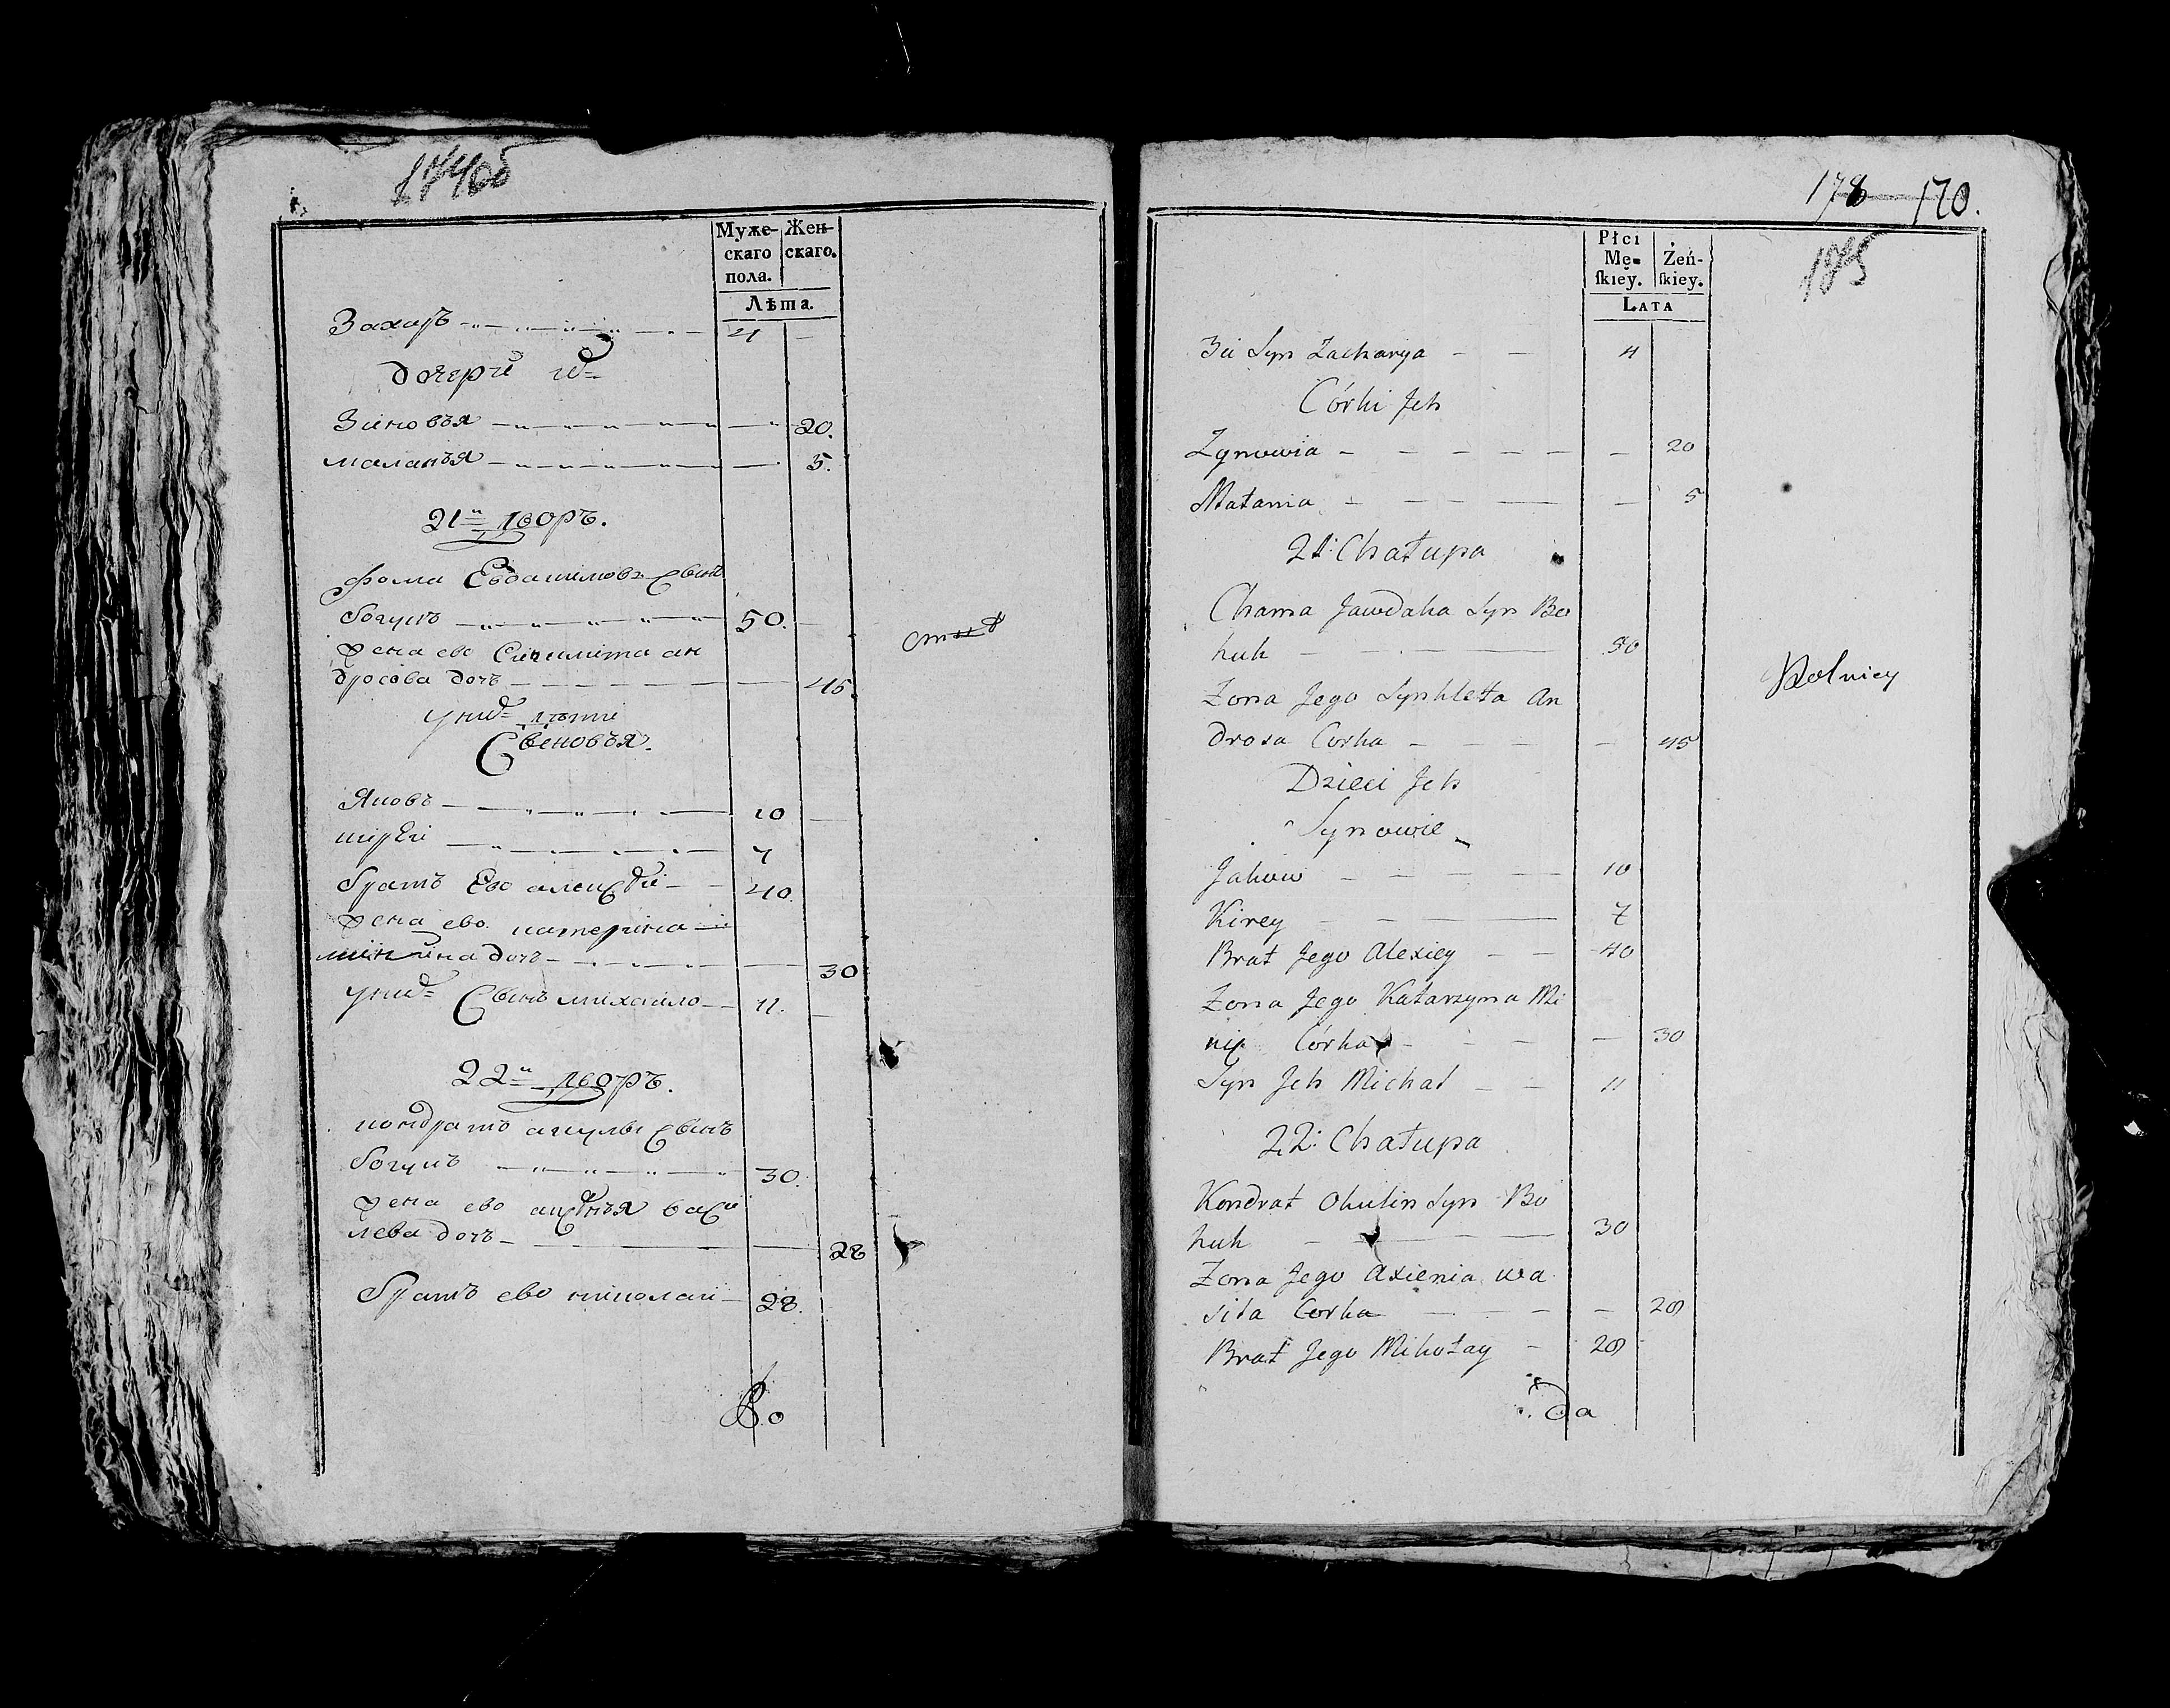 174об
Муже- Жен-
скаго скаго.
пола.
Лѣта.
Захаръ 4
дочери
Зиновья 20.
маланья 5.
21й дворъ.
фома Евдакимовъ Сынъ
богукъ 50.
жена ево Синклита ан
дросова дочь 45.
у них дети
Сыновья.
Яковъ 10
кирѣи 7
братъ Ево алексѣи 40.
жена ево катерина
минина дочь 30
у них Сынъ михаило 11.
22й дворъ.
кондратъ акулы Сынъ
богукъ 30.
жена ево аксинья васи
лева дочь 28
братъ ево николаи 28.
178 170.
175
Płci Żeń-
Mę- ſkiey.
ſkiey.
LATA
3ci Syn Zacharya 4
Córki Jch
Zynowia 20
Małania 5
21: Chałupa
Chama Jawdaka Syn Bo
huk 50
Zona Jego Synkleta An
drosa Corka 45
Dzieci Jch
Synowie
Jakow 10
Kirey 7
Brat Jego Alexiey 40
Zona Jego Katarzyna Mi
nip Córka 30
Syn Jch Michał 11
22: Chałupa
Kondrat Okulin Syn Bo
huk 30
Zona Jego Axienia wa
sila Corka 28
Brat Jego Mikołay 28
Rolnicy
Da